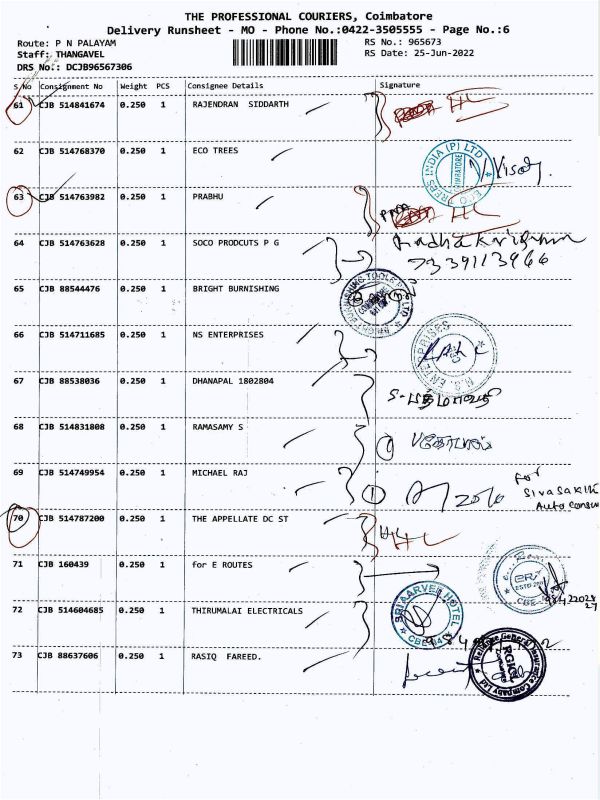 THE PROFESSIONAL COURIERS, Coimbatore
Delivery Runsheet - MO - Phone No.:0422-3505555 - Page No.:6
Route: P N PALAYAM RS No.: 965673
Staff: THANGAVEL RS Date: 25-Jun-2022
DRS No.: DCJB96567306
S No Consignment No Weight PCS Consignee Details Signature
61 CJB 514841674 0.250 1 RAJENDRAN SIDDARTH HL
62 CJB 514768370 0.250 1 ECO TREES
ECO TREES INDIA (P) LTD COIMBATORE
63 CJB 514763982 0.250 1 PRABHU HL
64 CJB 514763628 0.250 1 SOCO PRODCUTS P G Radhakrishnan
7339113966
65 CJB 88544476 0.250 1 BRIGHT BURNISHING
66 CJB 514711685 0.250 1 NS ENTERPRISES
N.S. ENTERPRISES
67 CJB 88538036 0.250 1 DHANAPAL 1802804
68 CJB 514831808 0.250 1 RAMASAMY S
69 CJB 514749954 0.250 1 MICHAEL RAJ
for
Sivasakthi
70 CJB 514787200 0.250 1 THE APPELLATE DC ST HL
71 CJB 160439 0.250 1 for E ROUTES
72 CJB 514604685 0.250 1 THIRUMALAI ELECTRICALS
SRI AARVEE HOTEL
73 CJB 88637606 0.250 1 RASIQ FAREED.
Reliance General Insurance Company Ltd